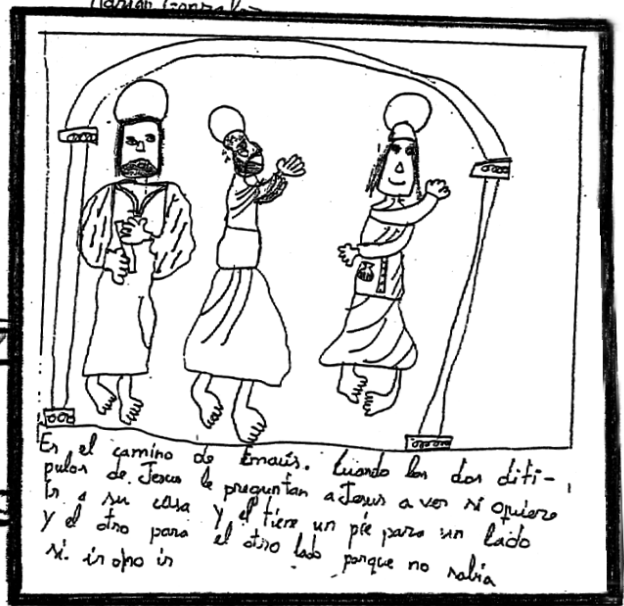 Marion Gonzalez
Es el camino de Emaús. Cuando los dos diti-
pulos de Jesus le preguntan a Jesus a ver si quiere
ir a su casa y el tiene un pie para un lado
y el otro para el otro lado porque no sabia
si ir o no ir